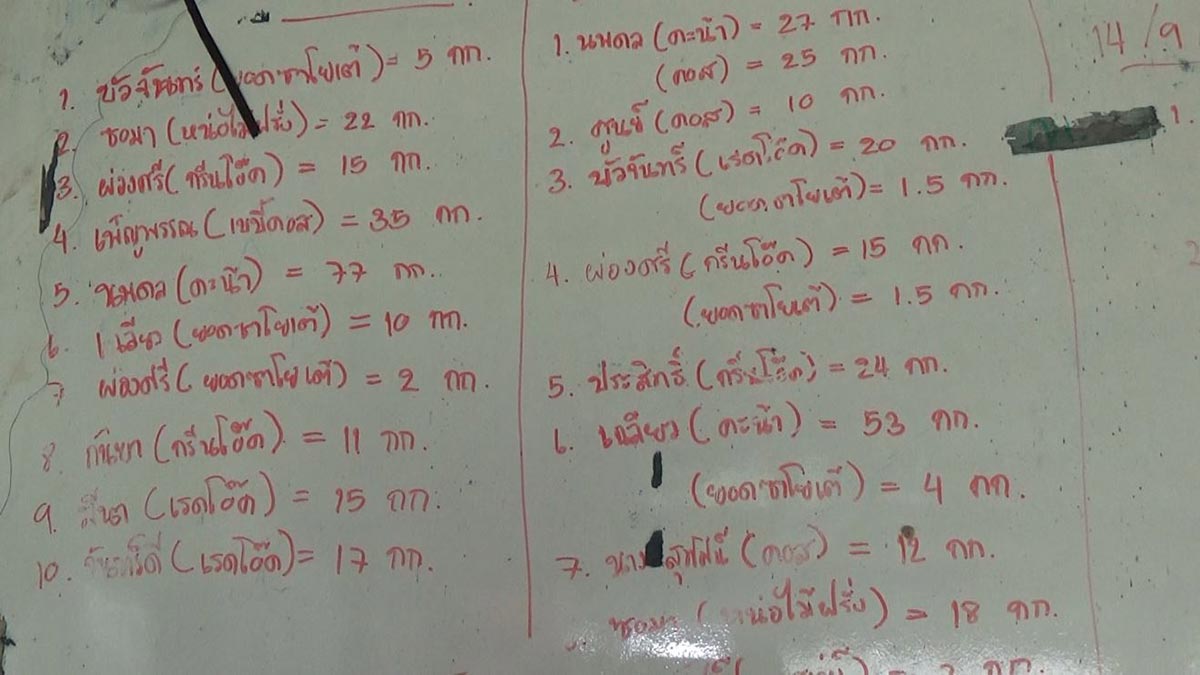 1. บัวจันทร์ (ยอดซาโยเต้) = 5 กก.
2. ชอมา (หน่อไม้ฝรั่ง) = 22 กก.
3. ผ่องศรี (กรีนโอ๊ค) = 15 กก.
4. เพ็ญพรรณ (เบบี้คอส) = 35 กก.
5. นพดล (คะน้า) = 77 กก.
6. (ยอดซาโยเต้) = 10 กก.
7 ผ่องศรี (ยอดซาโยเต้) = 2 กก.
8. กันยา (กรีนโอ๊ค) = 11 กก.
9. (เรดโอ๊ค) = 15 กก.
10. (เรดโอ๊ค) = 17 กก.
1. นพดล (คะน้า) = 27 กก.
(คอส) = 25 กก.
2. (คอส) = 10 กก.
3. บัวจันทร์ (เรดโอ๊ค) = 20 กก.
(ยอดซาโยเต้) = 1.5 กก.
4. ผ่องศรี (กรีนโอ๊ค) = 15 กก.
(ยอดซาโยเต้) = 1.5 กก.
5. ประสิทธิ์ (กรีนโอ๊ค) = 24 กก.
6. เฉลียว (คะน้า) = 53 กก.
(ยอดซาโยเต้) = 4 กก.
7. (คอส) = 12 กก.
ชอมา (หน่อไม้ฝรั่ง) = 18 กก.
กก.
14/9
1.
2